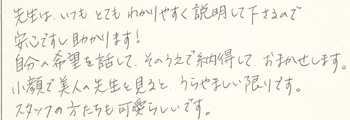 先生は、いつも とても わかりやすく 説明して下さるので
安心ですし 助かります！
自分の希望を話して、そのうえで納得して、おまかせします。
小顔で美人の先生を見ると、うらやましい限りです。
スタッフの方たちも可愛らしいです。